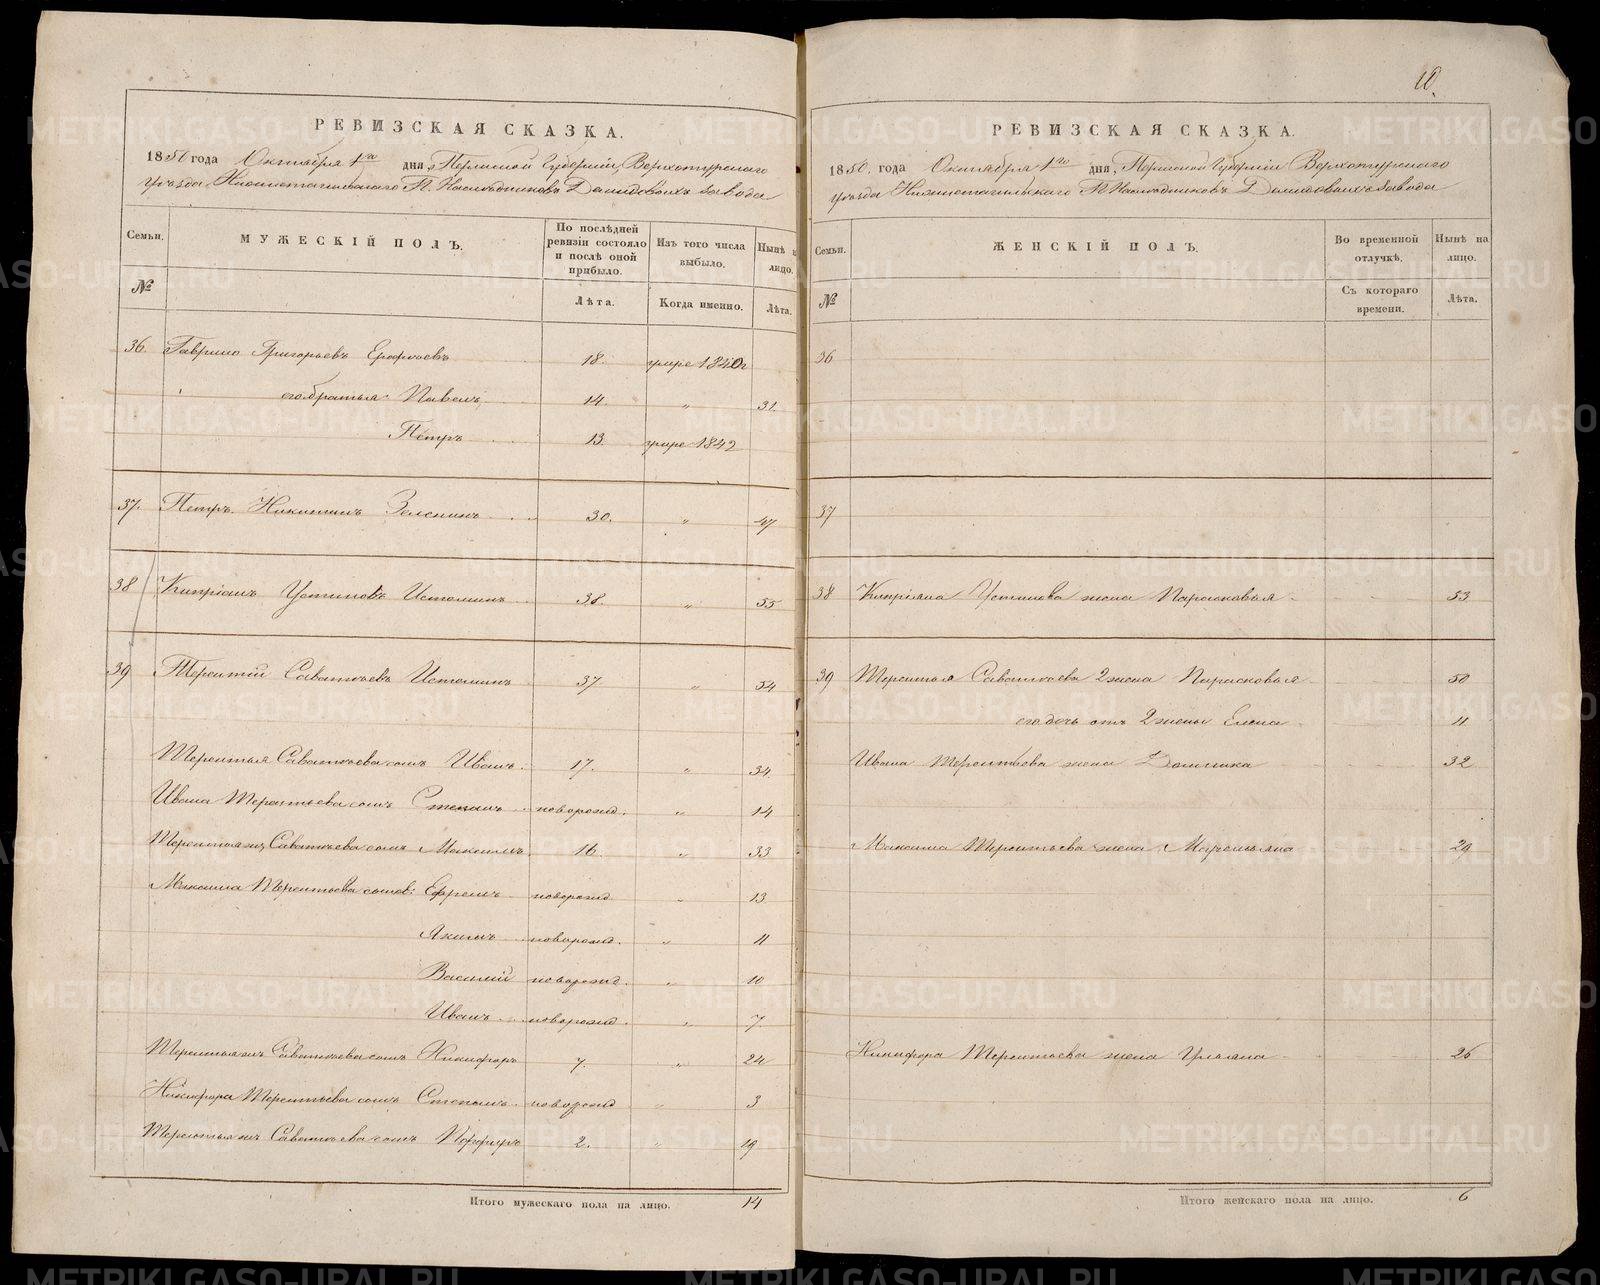 РЕВИЗСКАЯ СКАЗКА.
1850 года Октября 1го дня, Пермской Губернии, Верхотурского
уѣзда, Нижнетагильского Г. Наслѣдниковъ Демидовыхъ завода
Семьи. МУЖЕСКІЙ ПОЛЪ. По послѣдней ревизіи состояло и послѣ оной прибыло. Изъ того числа выбыло. Нынѣ на лицо.
№ Лѣта. Когда именно. Лѣта.
36. Гаврило Григорьевъ Ерофѣевъ 18. умре 1840г
его братья Павелъ 14. " 31.
Петръ 13. умре 1842
37. Петръ Никитинъ Зеленинъ 30. " 47
38 Кипріянъ Устиновъ Истоминъ 38. " 55
39 Терентій Саватѣевъ Истоминъ 37 " 54
Терентья Саватѣева сынъ Иванъ 17. " 34
Ивана Терентьева сынъ Степанъ новорожд. " 14
Терентья жъ Саватѣева сынъ Максимъ 16 " 33
Максима Терентьева сыновья: Ефремъ новорожд " 13
Якимъ новорожд. " 11
Василий новорожд. " 10
Иванъ новорожд. " 7
Терентья жъ Саватѣева сынъ Никифоръ 7. " 24
Никифора Терентьева сынъ Степанъ новорожд " 3
Терентья жъ Саватѣева сынъ Порфиръ 2. " 19
Итого мужескаго пола на лицо. 14
10.
РЕВИЗСКАЯ СКАЗКА.
1850. года Октября 1го дня, Пермской Губернии Верхотурского
уѣзда Нижнетагильского Г. Наслѣдниковъ Демидовыхъ завода
Семьи. ЖЕНСКІЙ ПОЛЪ. Во временной отлучкѣ. Нынѣ на лицо.
№ Съ котораго времени. Лѣта.
36
37
38 Кипріяна Устинова жена Парасковья 53
39 Терентья Саватѣева 2 жена Парасковья 50
его дочь отъ 2 жены Елена 11
Ивана Терентьева жена Домника 32
Максима Терентьева жена Маремьяна 29
Никифора Терентьева жена Ульяна 26
Итого женскаго пола на лицо. 6
METRIKI.GASO-URAL.RU